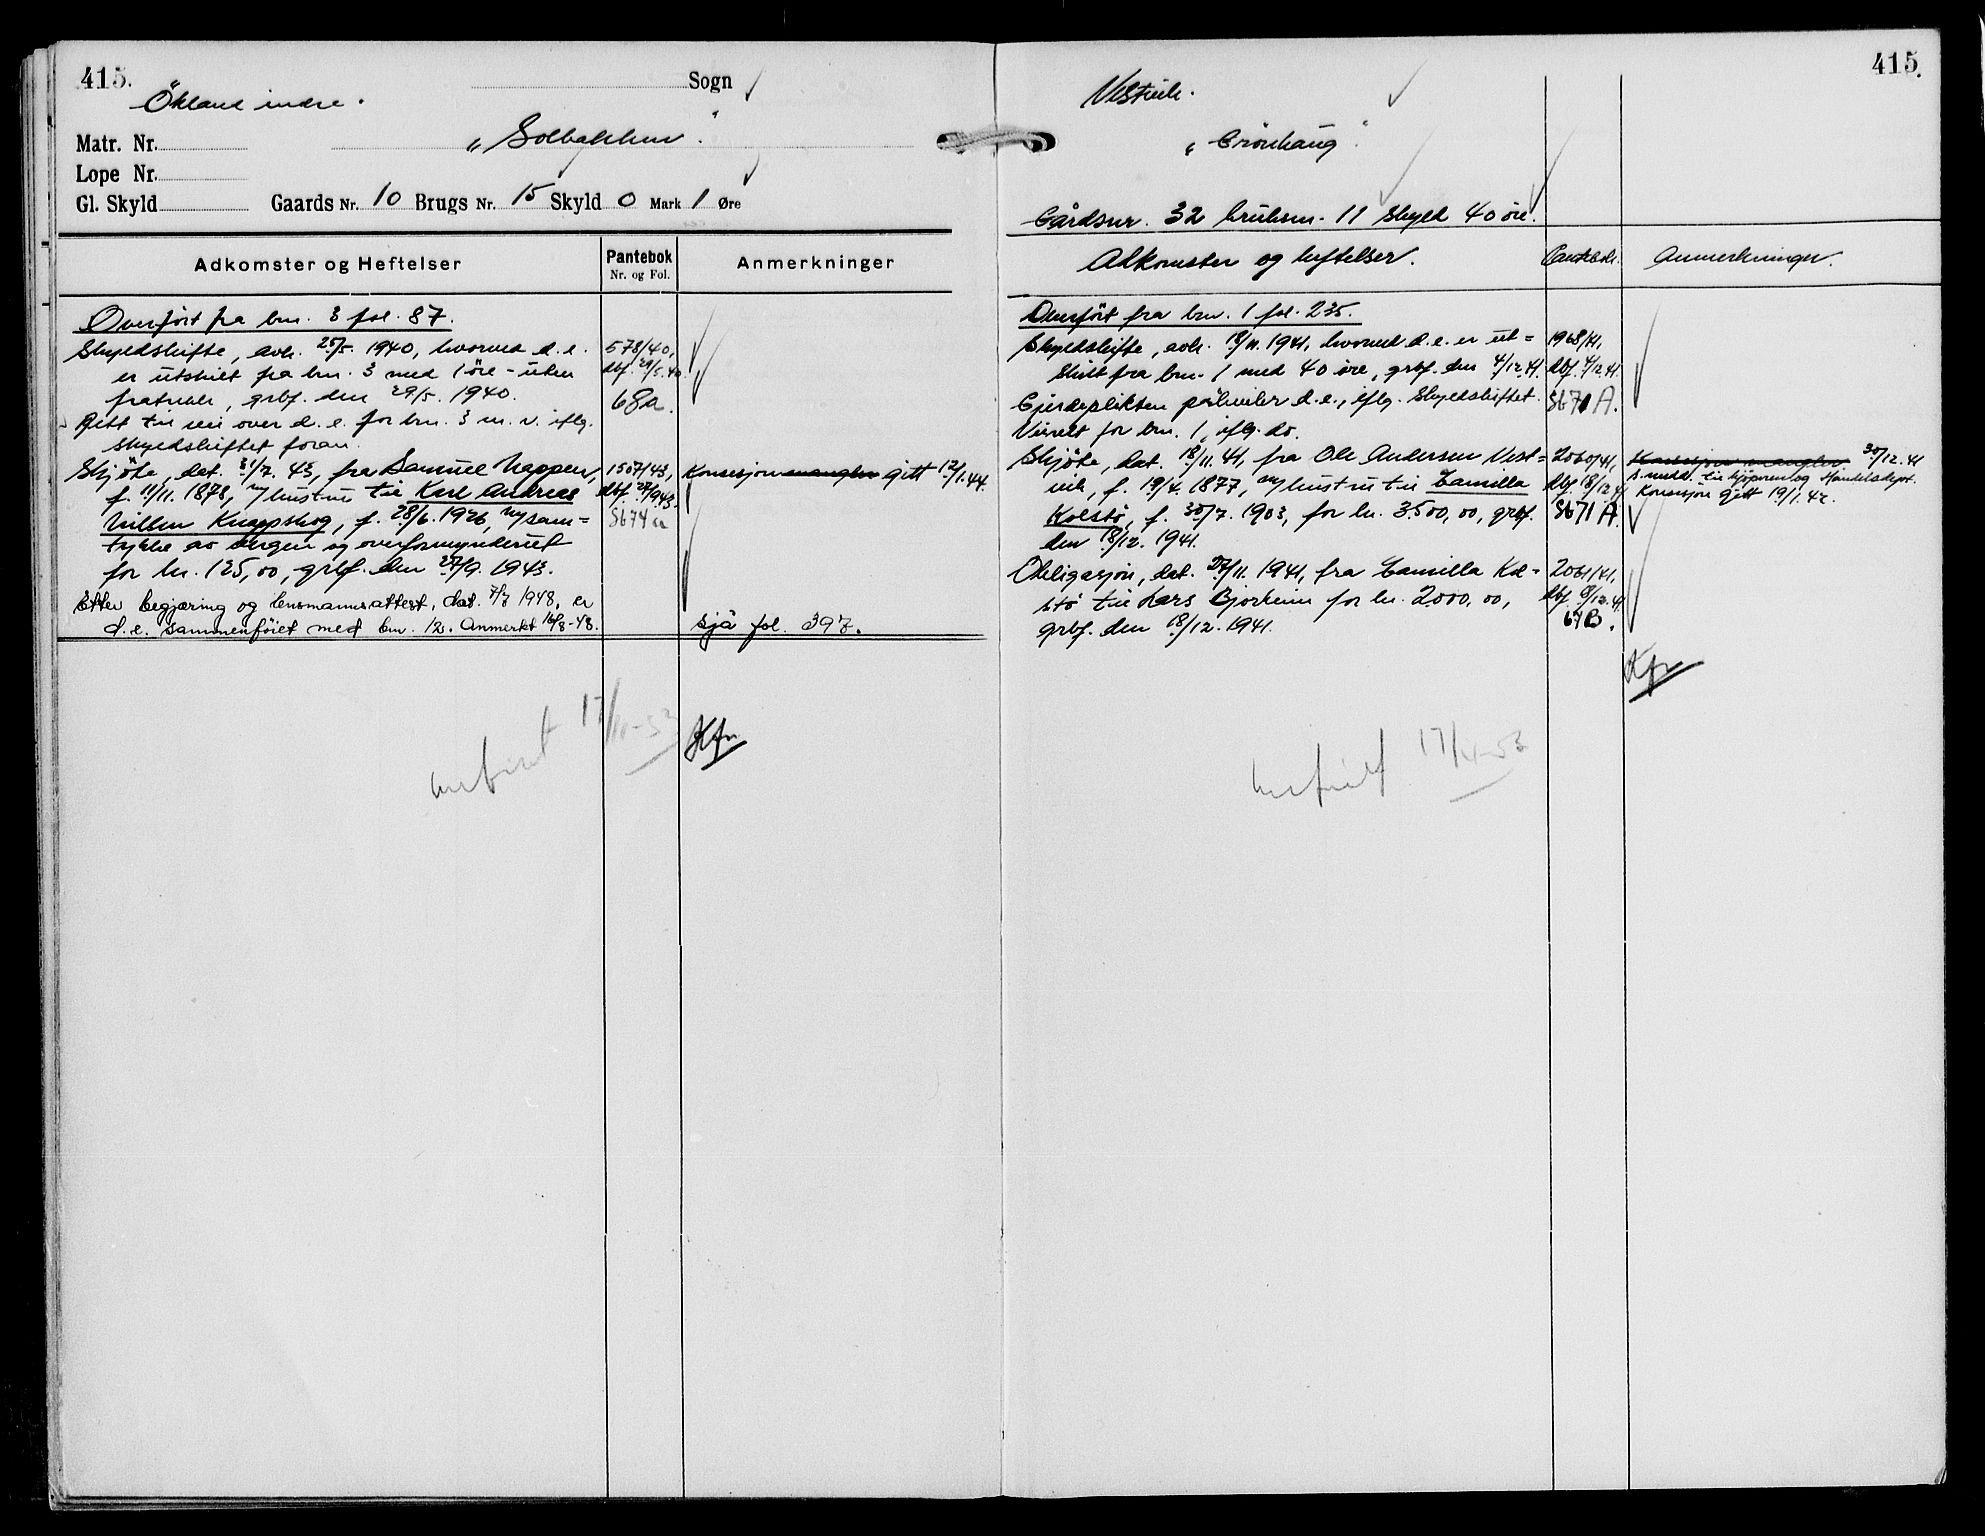 415.
Sogn
Ökland indre.
Matr. Nr.
„Solbakken".
Lope Nr.
Gl. Skyld Gaards Nr. 10 Brugs Nr. 15 Skyld 0 Mark 1 Øre
Adkomster og Heftelser
Pantebok
Nr. og Fol.
Anmerkninger
Overført fra bnr. 3 fol. 87.
Skyldskifte, avh. 25/5. 1940, hvorved d.e.
er utskilt fra bnr. 3 med 1 öre - uten
fratrekk, grbf. den 29/5. 1940.
578/40,
dbf. 29/5.40.
68a.
Rett til vei over d.e. for bnr. 3 m.v. iflg.
skyldskiftet foran.
Skjöte, dat. 31/7. 43, fra Samuel Nappen,
f. 11/11. 1878, m/hustru til Karl Andreas
Villem Knappskog, f. 28/6. 1926, m/sam=
tykke av vergen og overformynderiet
for kr. 125,00, grbf. den 27/9. 1943.
1507/43,
dbf. 27/9.43.
S674a
Konsesjon mangler gitt 12/1.44.
Etter begjæring og lensmannsattest, dat. 7/7 1948, er
d.e. sammenföiet med bnr. 12. Anmerkt 16/8-48.
sjå fol. 397.
17/11-53
Kfr
415.
Vestvik.
„Grönhaug".
Gårdsnr. 32 bruksnr. 11 skyld 40 öre.
Adkomster og heftelser.
Pantebok.
Anmerkninger.
Overfört fra bnr. 1 fol. 235.
Skyldskifte, avh. 18/11. 1941, hvorved d.e. er ut=
skilt fra bnr. 1 med 40 öre, grbf. den 4/12.41.
1968/41.
dbf. 4/12.41
S671A.
Gjerdeplikten påhviler d.e., iflg. skyldskiftet.
Veirett for bnr. 1, iflg. do.
Skjöte, dat. 18/11. 41, fra Ole Andersen Vest=
vik, f. 19/4. 1877, m/hustru til Camilla
Kolstö, f. 30/7. 1903, for kr. 3.500,00, grbf.
den 18/12. 1941.
2060/41,
dbf. 18/12.41
S671A.
Konsesjon mangler 30/12.41
s. medd. til kjöperen og Handelsdept.
Konsesjon gitt 19/1.42.
Obligasjon, dat. 27/11. 1941, fra Camilla Kol=
stö til Lars Bjorheim for kr. 2000,00,
grbf. den 18/12. 1941.
2061/41,
dbf. 18/12.41
67B.
Kfr
17/11-53